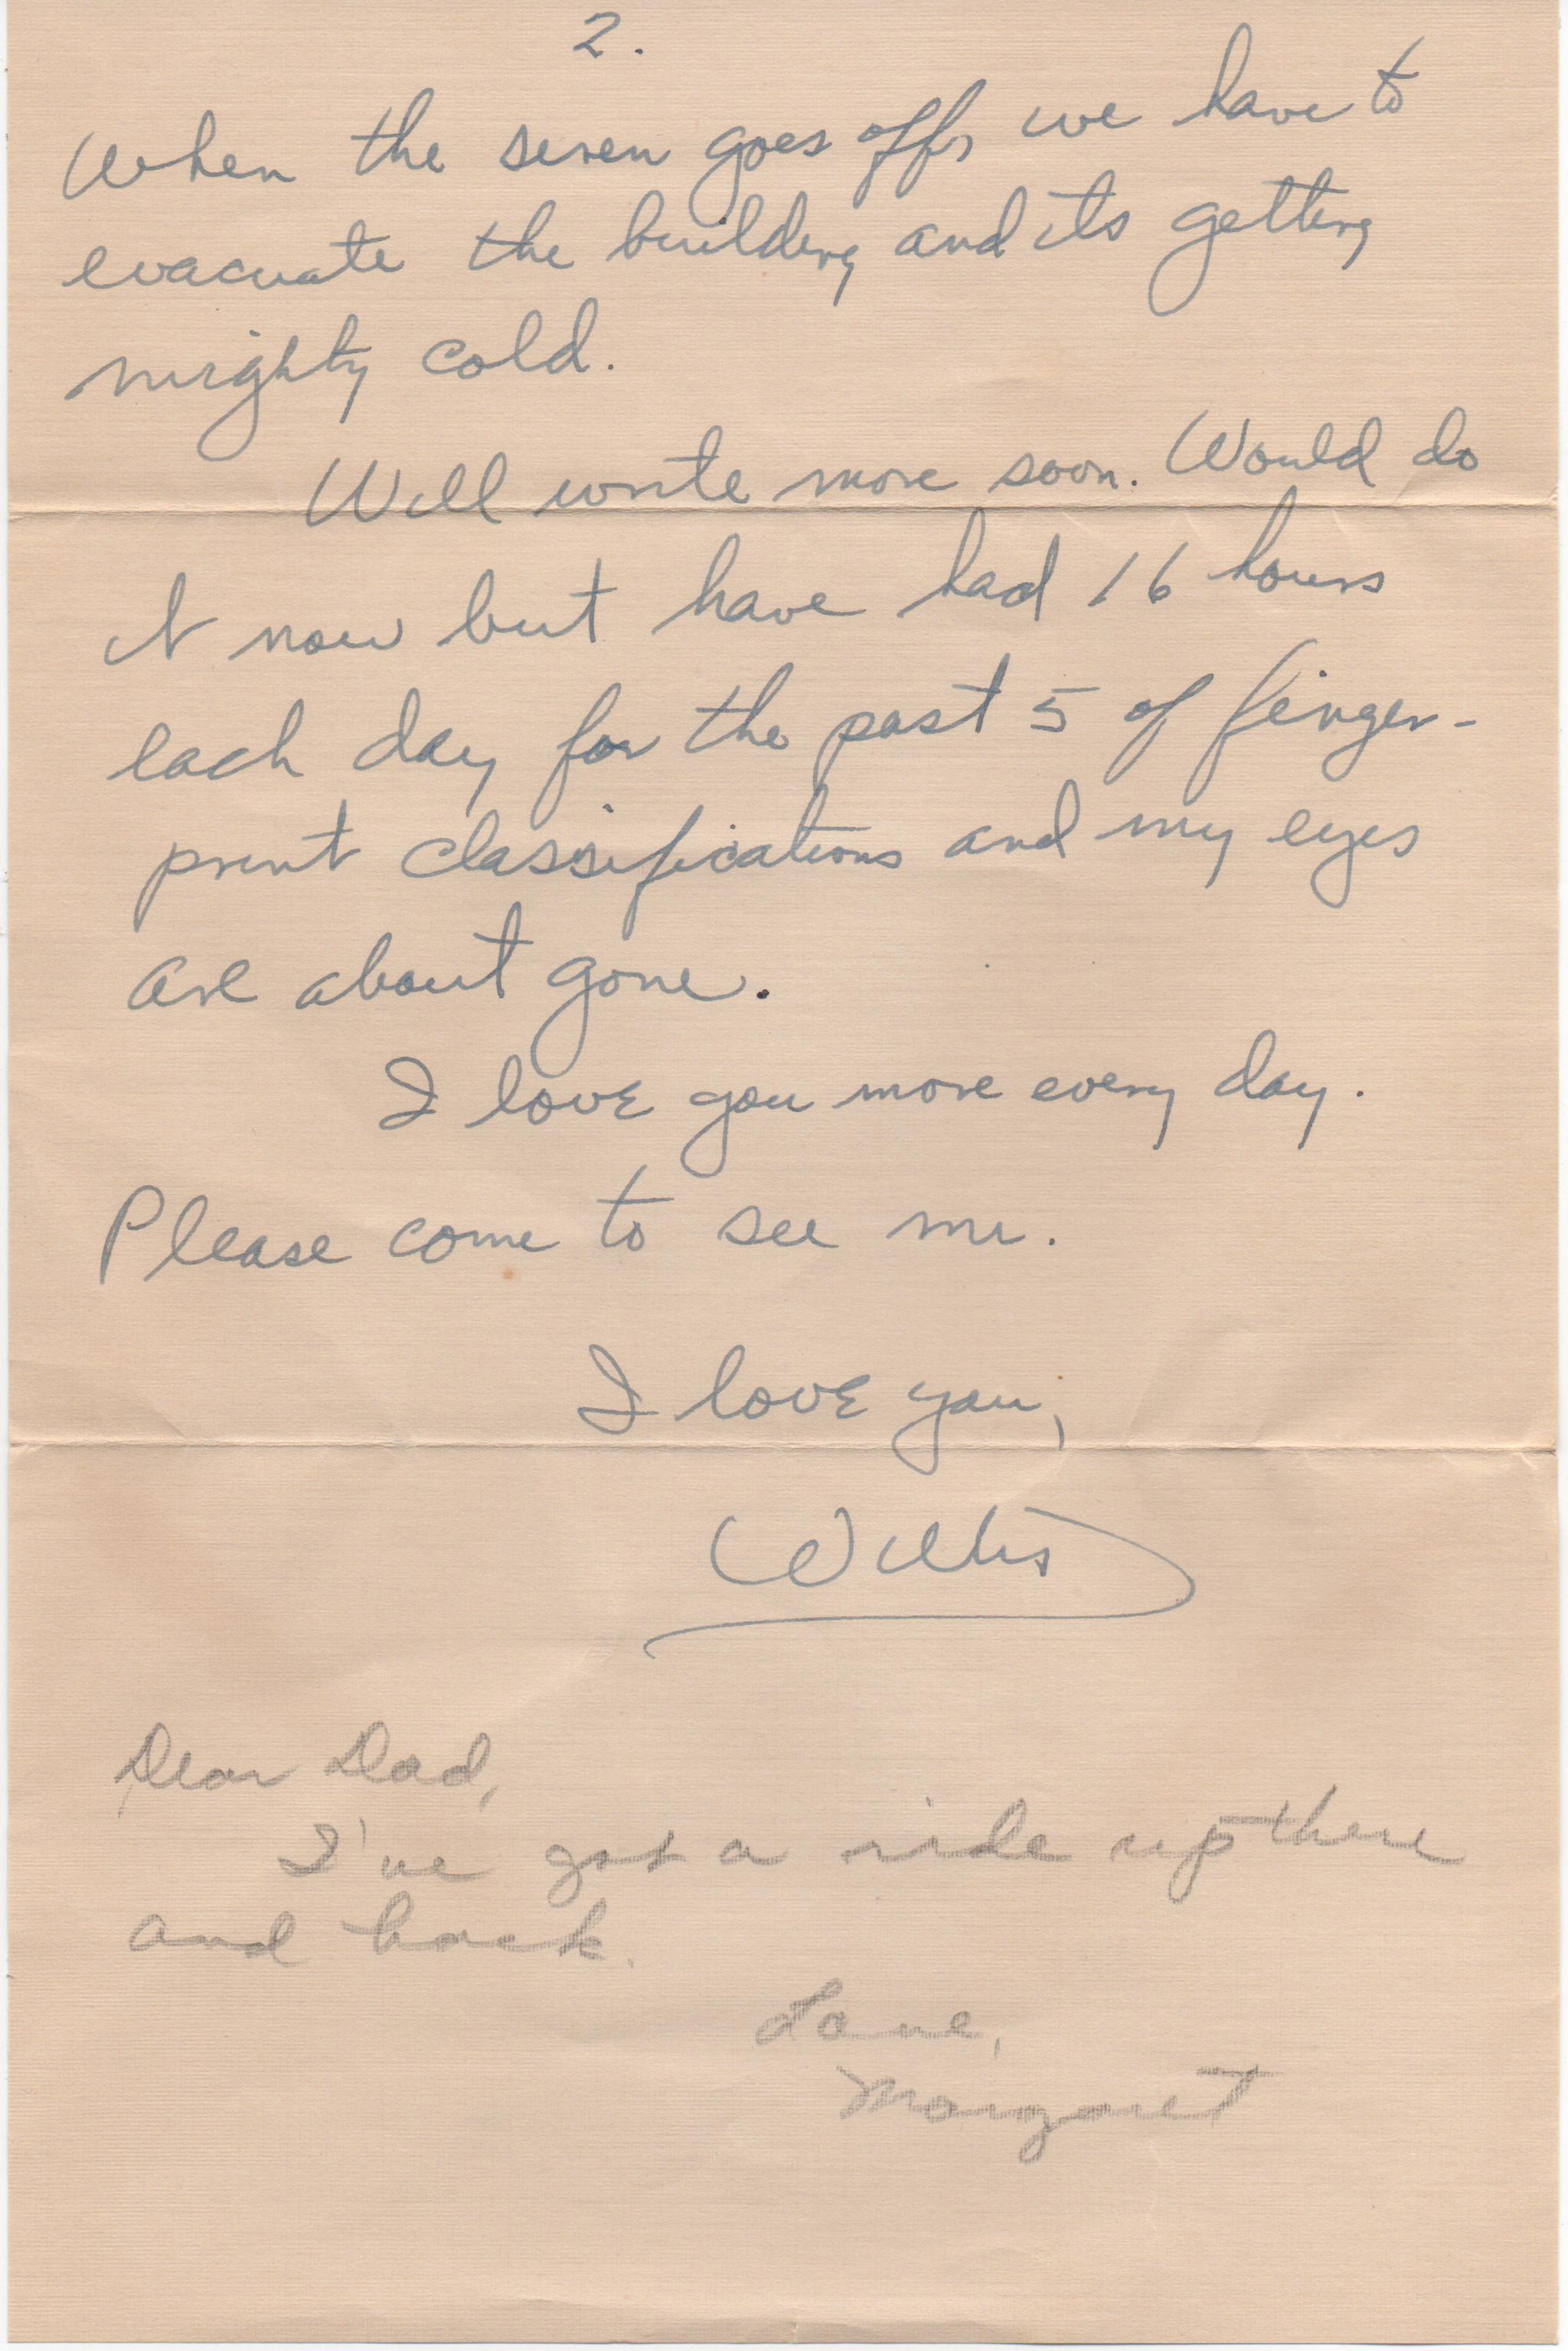 2.
When the siren goes off, we have to
evacuate the building and its getting
mighty cold.
Will write more soon. Would do
it now but have had 16 hours
each day for the past 5 of finger-
print classifications and my eyes
are about gone.
I love you more every day.
Please come to see me.
I love you,
Willis
Dear Dad,
I've got a ride up there
and back.
Love,
Margaret